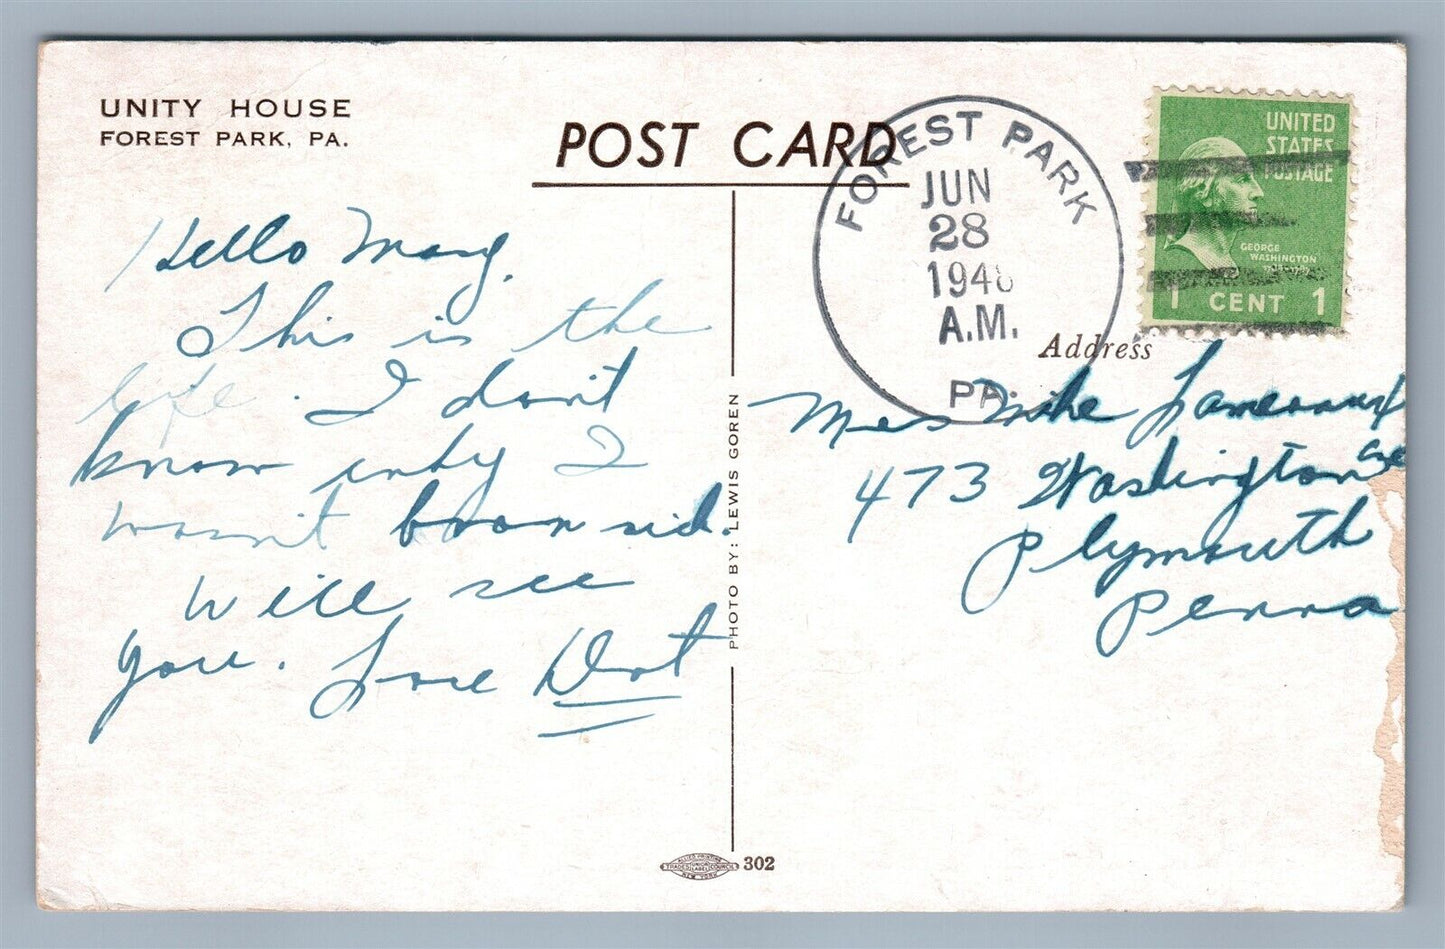 UNITY HOUSE
FOREST PARK, PA.
POST CARD
FOREST PARK
JUN
28
1948
A.M.
PA.
UNITED
STATES
POSTAGE
GEORGE
WASHINGTON
1 CENT 1
Address
Hello Mary.
This is the
life. I don't
know why I
wasn't born rich.
Will see
you. Love Dot
Mrs Mike
473 Washington Ave
Plymouth
Penna
PHOTO BY: LEWIS GOREN
ALLIED PRINTING
TRADES UNION LABEL COUNCIL
NEW YORK
302